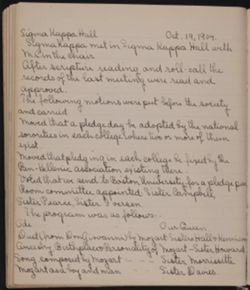 Sigma Kappa Hall Oct. 19, 1904.
Sigma Kappa met in Sigma Kappa Hall with
in the chair
After scripture reading and roll-call the
records of the last meeting were read and
approved.
The following motions were put before the society
and carried
Moved that a pledge day be adopted by the national
sororities in each college where two or more of them
exist
Moved that pledging in each college be fixed by the
Pan-Hellenic association existing there.
Voted that we send to Boston University for a pledge pin
Room committee appointed: Sister Campbell,
Sister Pearce, Sister
The program was as follows:
Ode Our Queen
Duet (from Don Giovanni) by Mozart Sisters Hall + Harrison
Ancestry, Birthplace, Personality of Mozart - Sister Howard
Song composed by Mozart Sister Morrisette
Mozart as a boy and man Sister Davies.